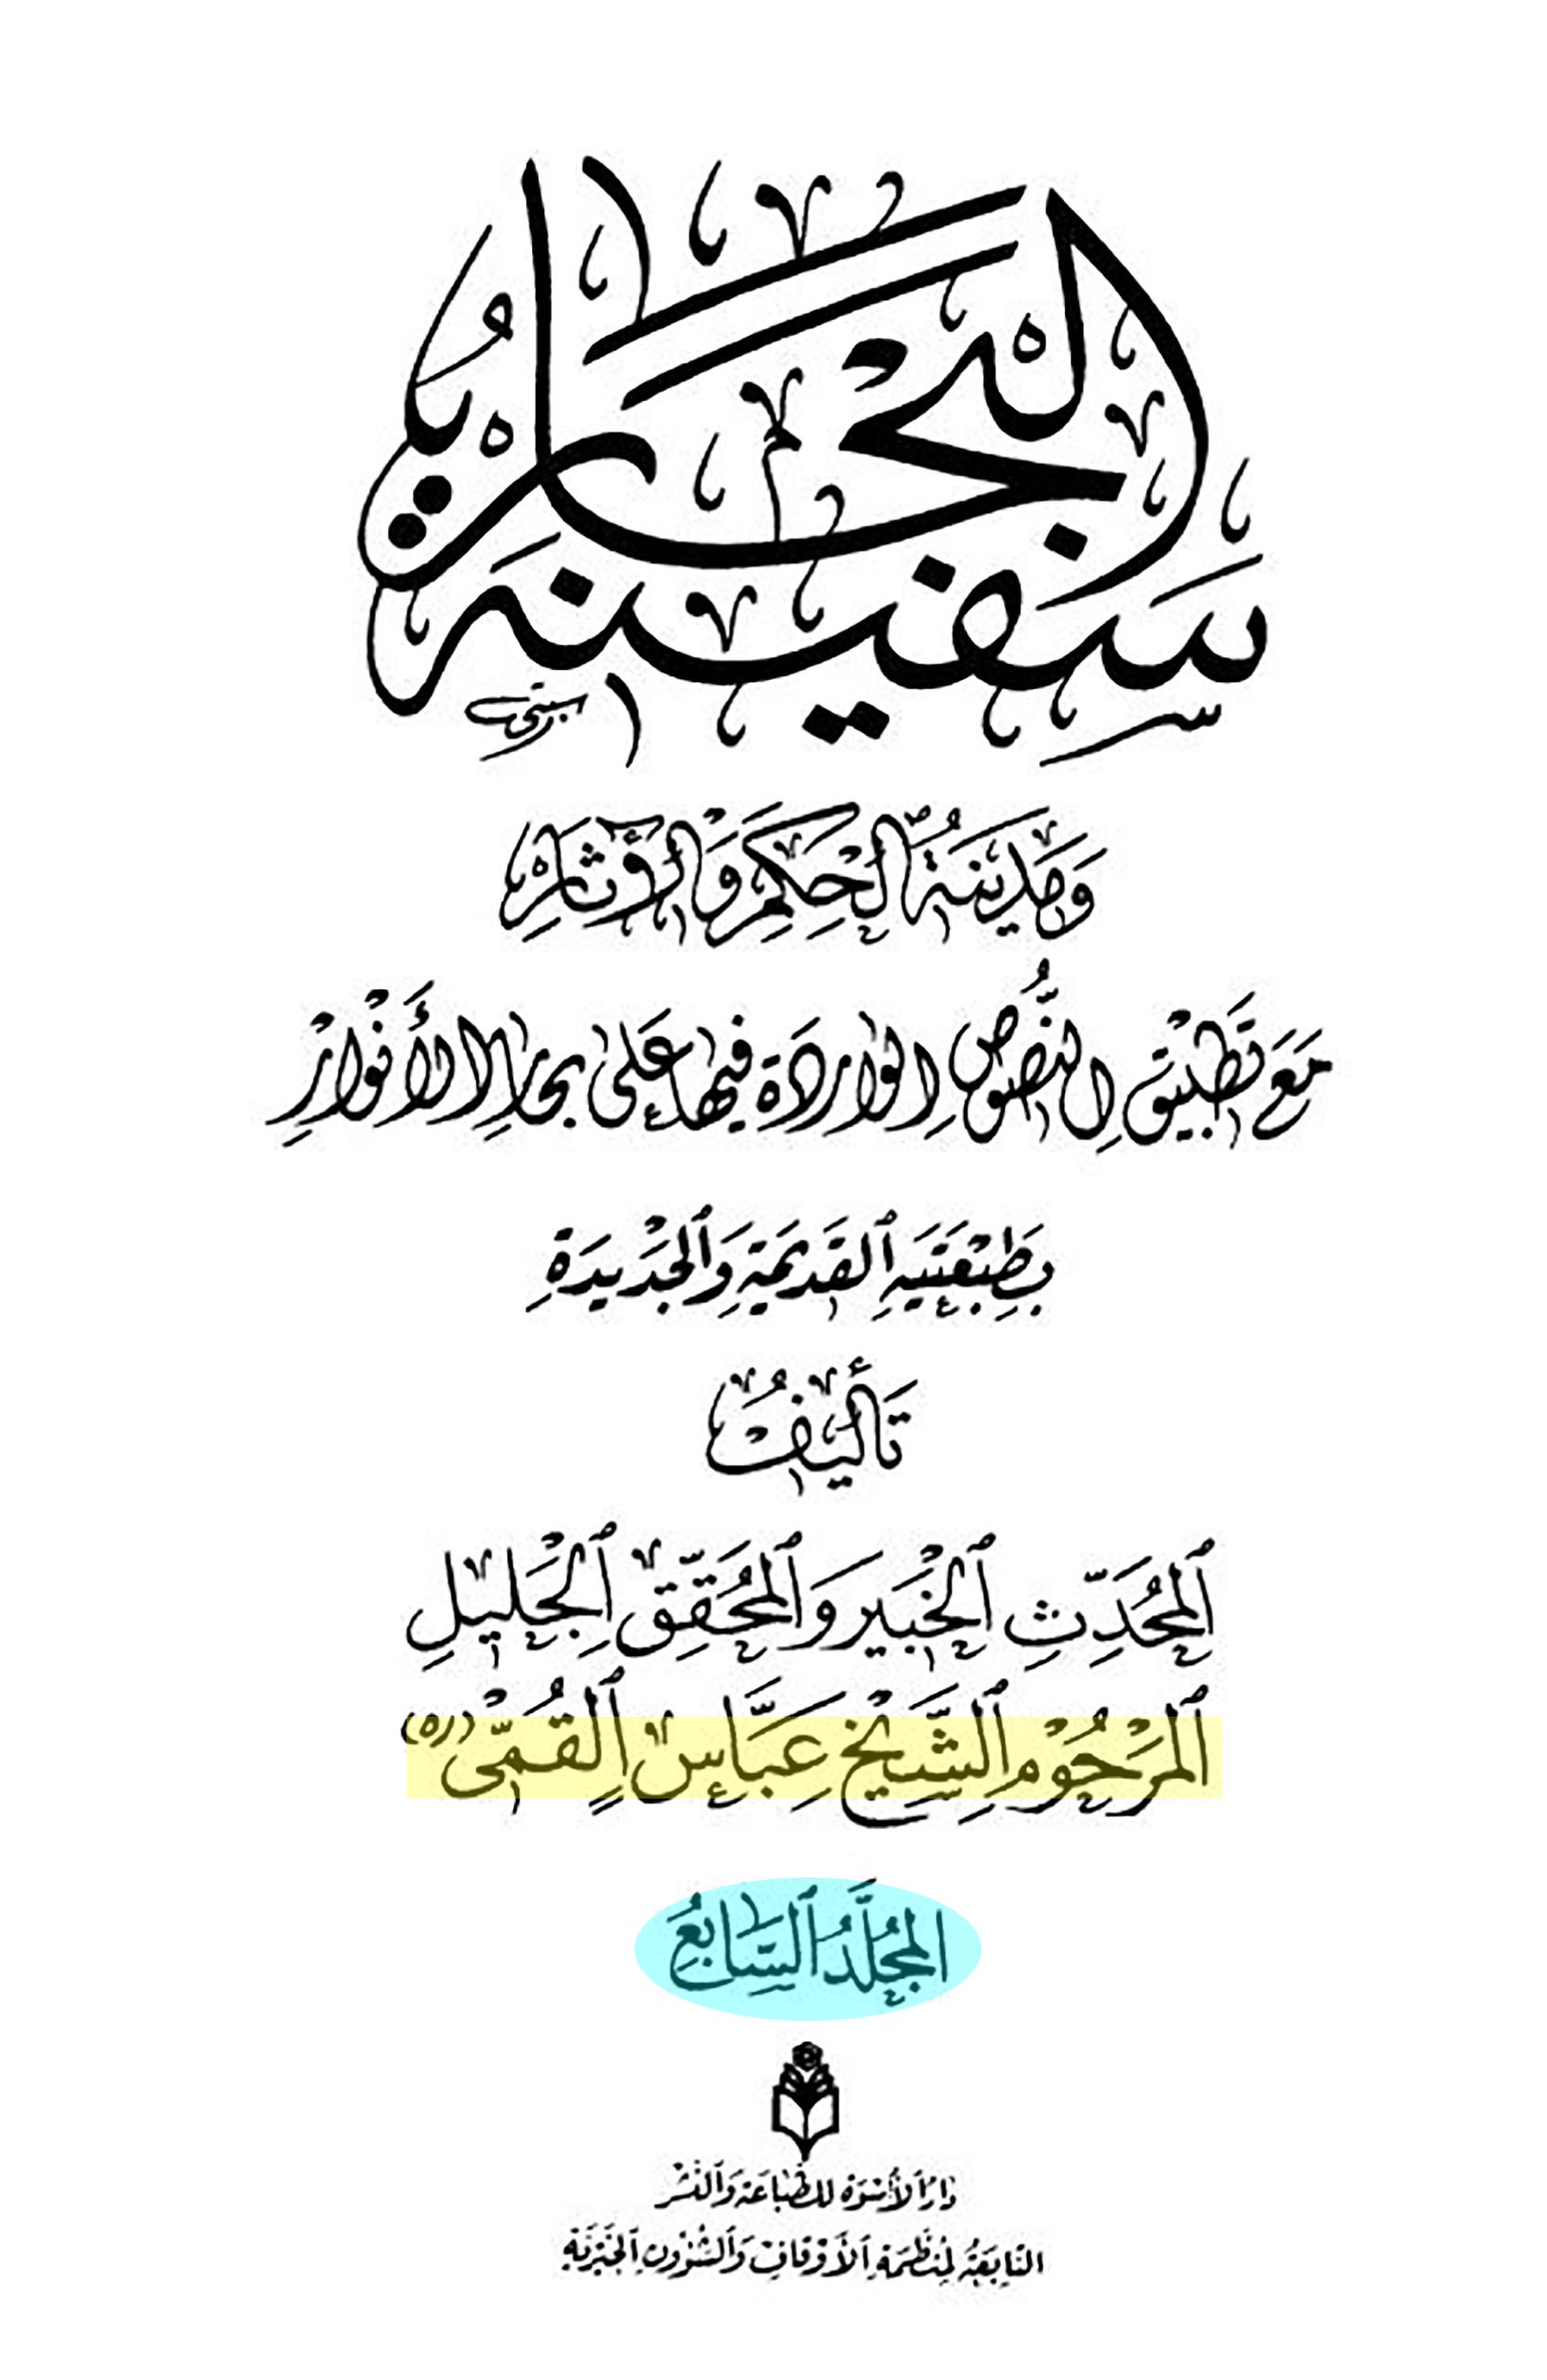 سَفينَة
البِحَار
وَمَدينَةُ الحِكَمِ وَالآثَارِ
مَعَ تَطْبيْقِ النُّصُوصِ الوَارِدَة فيهَا عَلى بحَارِ الأَنْوَارِ
بِطَبْعَتَيهِ ٱلقَديمَةِ وَٱلجَدْيدَةِ
تَأليفُ
ٱلمُحَدِّثِ ٱلخَبْيرِ وَٱلمُحَقِّقِ ٱلجَليلِ
ٱلمَرْحُوْمِ ٱلشَّيْخ عَبَّاس ٱلقُمّى (ره)
المُجَلَّدُ ٱلسَّابعُ
دَارُ ٱلأُسْوَة للطّبَاعَةِ وَٱلنَّشْر
التَابِعَةُ لمُنَظَّمَةِ ٱلأَوْقافِ وَٱلشُؤُونِ ٱلخَيْرِيَّةِ